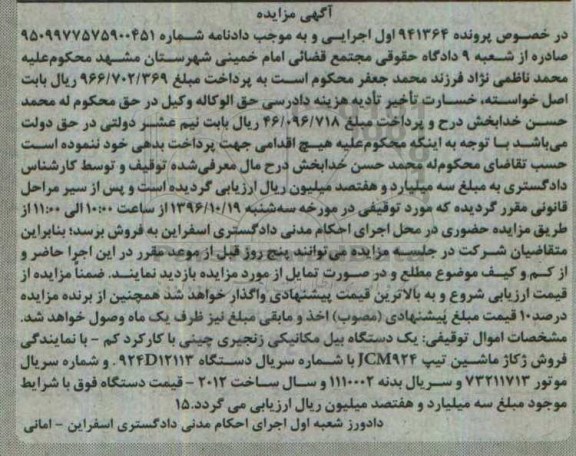 آگهی مزایده
در خصوص پرونده ۹۴۱۳۶۴ اول اجرایی و به موجب دادنامه شماره ۹۵۰۹۹۷۷۵۷۵۹۰۰۴۵۱
صادره از شعبه ۹ دادگاه حقوقی مجتمع قضائی امام خمینی شهرستان مشهد محکوم‌علیه
محمد ناظمی نژاد فرزند محمد جعفر محکوم است به پرداخت مبلغ ۹۶۶/۷۰۲/۳۶۹ ریال بابت
اصل خواسته، خسارت تأخیر تأدیه هزینه دادرسی حق الوکاله وکیل در حق محکوم له محمد
حسن خدابخش درح و پرداخت مبلغ ۴۶/۰۹۶/۷۱۸ ریال بابت نیم عشر دولتی در حق دولت
می‌باشد با توجه به اینکه محکوم‌علیه هیچ اقدامی جهت پرداخت بدهی خود ننموده است
حسب تقاضای محکوم‌له محمد حسن خدابخش درح مال معرفی‌شده توقیف و توسط کارشناس
دادگستری به مبلغ سه میلیارد و هفتصد میلیون ریال ارزیابی گردیده است و پس از سیر مراحل
قانونی مقرر گردیده که مورد توقیفی در مورخه سه‌شنبه ۱۳۹۶/۱۰/۱۹ از ساعت ۱۰:۰۰ الی ۱۱:۰۰ از
طریق مزایده حضوری در محل اجرای احکام مدنی دادگستری اسفراین به فروش برسد؛ بنابراین
متقاضیان شرکت در جلسه مزایده می‌توانند پنج روز قبل از موعد مقرر در این اجرا حاضر و
از کم و کیف موضوع مطلع و در صورت تمایل از مورد مزایده بازدید نمایند. ضمناً مزایده از
قیمت ارزیابی شروع و به بالاترین قیمت پیشنهادی واگذار خواهد شد همچنین از برنده مزایده
۱۰درصد قیمت مبلغ پیشنهادی (مصوب) اخذ و مابقی مبلغ نیز ظرف یک ماه وصول خواهد شد.
مشخصات اموال توقیفی: یک دستگاه بیل مکانیکی زنجیری چینی با کارکرد کم - با نمایندگی
فروش ژکاژ ماشین تیپ JCM۹۲۴ با شماره سریال دستگاه ۹۲۴D۱۲۱۱۳ . و شماره سریال
موتور ۷۳۲۱۱۷۱۳ و سریال بدنه ۱۱۱۰۰۰۲ و سال ساخت ۲۰۱۲ - قیمت دستگاه فوق با شرایط
موجود مبلغ سه میلیارد و هفتصد میلیون ریال ارزیابی می گردد.۱۵
دادورز شعبه اول اجرای احکام مدنی دادگستری اسفراین - امانی